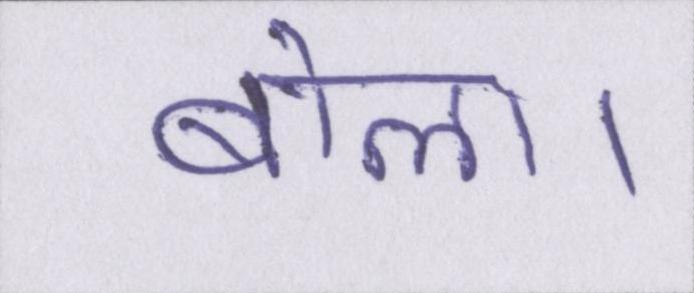 बोला।